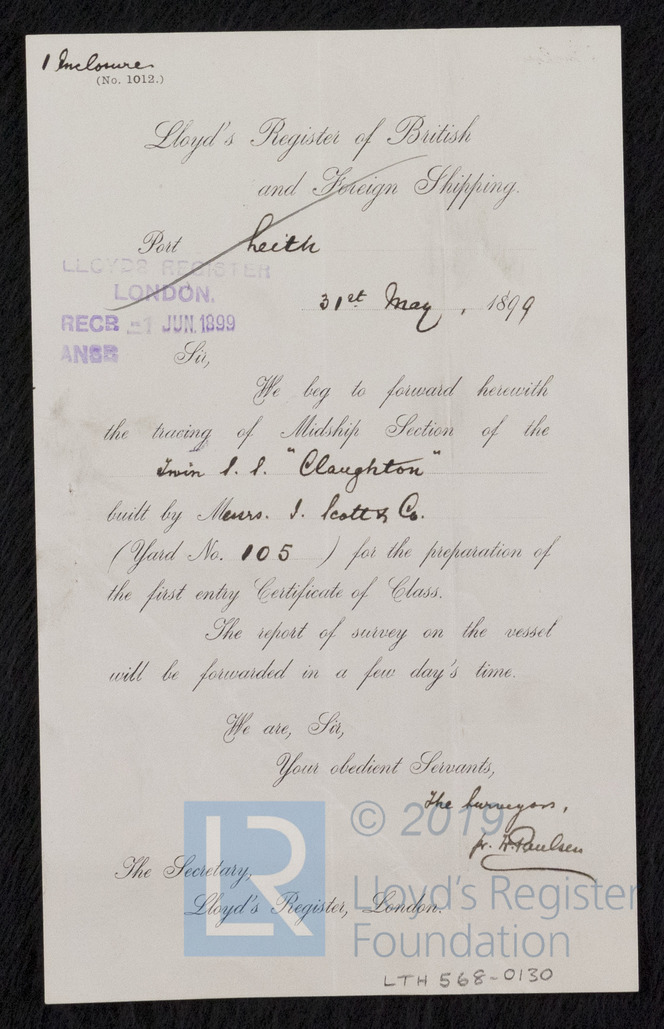 1 Inclosure
(No. 1012.)
Lloyd's Register of British
and Foreign Shipping.
Port Leith
LLOYDS REGISTER
LONDON.
RECD -1 JUN.1899
ANSD
31st May, 1899
Sir,
We beg to forward herewith
the tracing of Midship Section of the
Twin S. S. "Claughton"
built by Messrs. J. Scott & Co.
(Yard No. 105 ) for the preparation of
the first entry Certificate of Class.
The report of survey on the vessel
will be forwarded in a few day's time.
We are, Sir,
Your obedient Servants,
The Surveyors,
pr. H. Paulsen
The Secretary,
Lloyd's Register, London.
LR
© 2019
Lloyd's Register
Foundation
LTH 568-0130